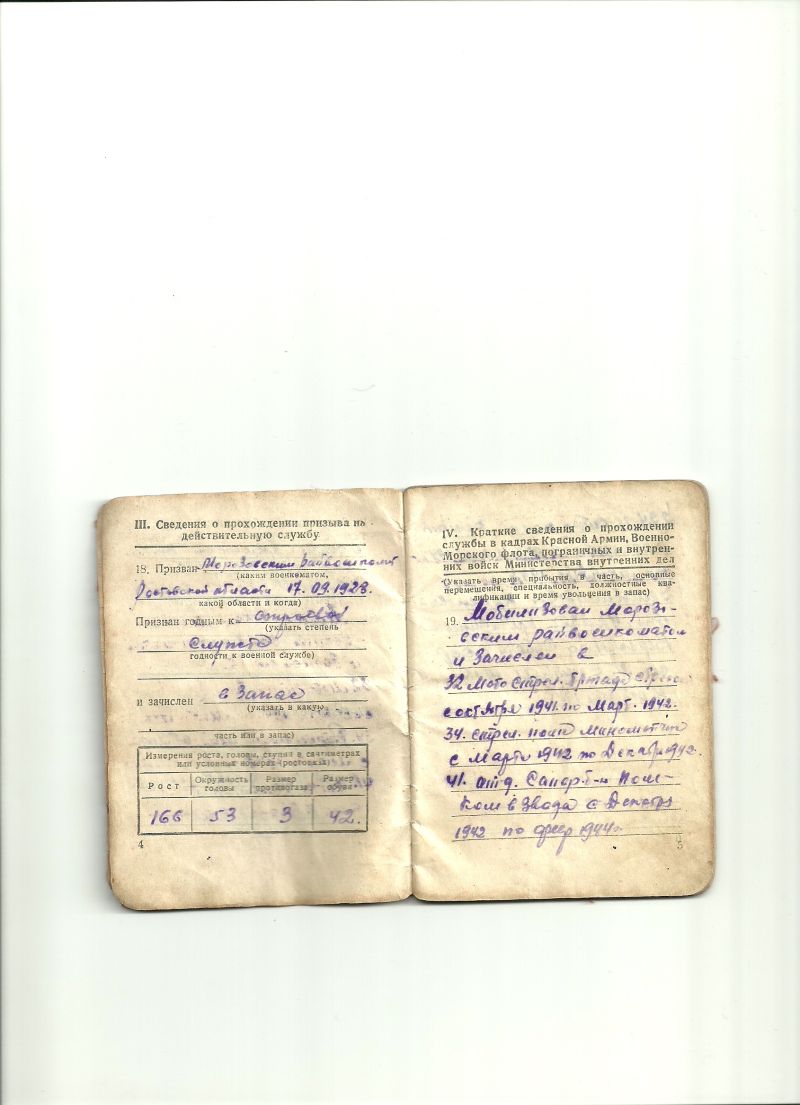 III. Сведения о прохождении призыва на
действительную службу
18. Призван Морозовским райвоенкомат
(каким военкоматом,
Ростовской области 17.09.1928.
какой области и когда)
Призван годным к строевой
(указать степень
службе
годности к военной службе)
и зачислен в запас
(указать в какую
часть или в запас)
Измерения роста, головы, ступни в сантиметрах
или условных номерах (ростовках)
Рост Окружность головы Размер противогаза Размер обуви
166 53 3 42.
4
IV. Краткие сведения о прохождении
службы в кадрах Красной Армии, Военно-
Морского флота, пограничных и внутрен-
них войск Министерства внутренних дел
(Указать время прибытия в часть, основные
перемещения, специальность, должностные ква-
лификации и время увольнения в запас)
19. Мобилизован Морозо-
вским райвоенкоматом
и зачислен в
32 мото стрел. бригаду стрелок
с октября 1941. по март. 1942.
34. стрел. полк минометчик
с марта 1942 по декабр 1942
41. отд. Сапер. б-н Пом-
ком взвода с декабря
1942 по февр 1944г.
5